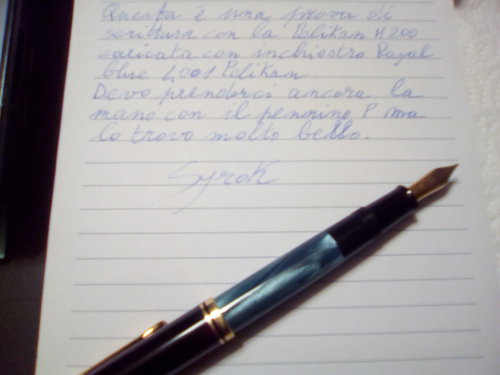 Questa è una prova di
scrittura con la Pelikan M200
caricata con inchiostro Royal
blue 4001 Pelikan.
Devo prenderci ancora la
mano con il pennino F ma
lo trovo molto bello.
Syrok